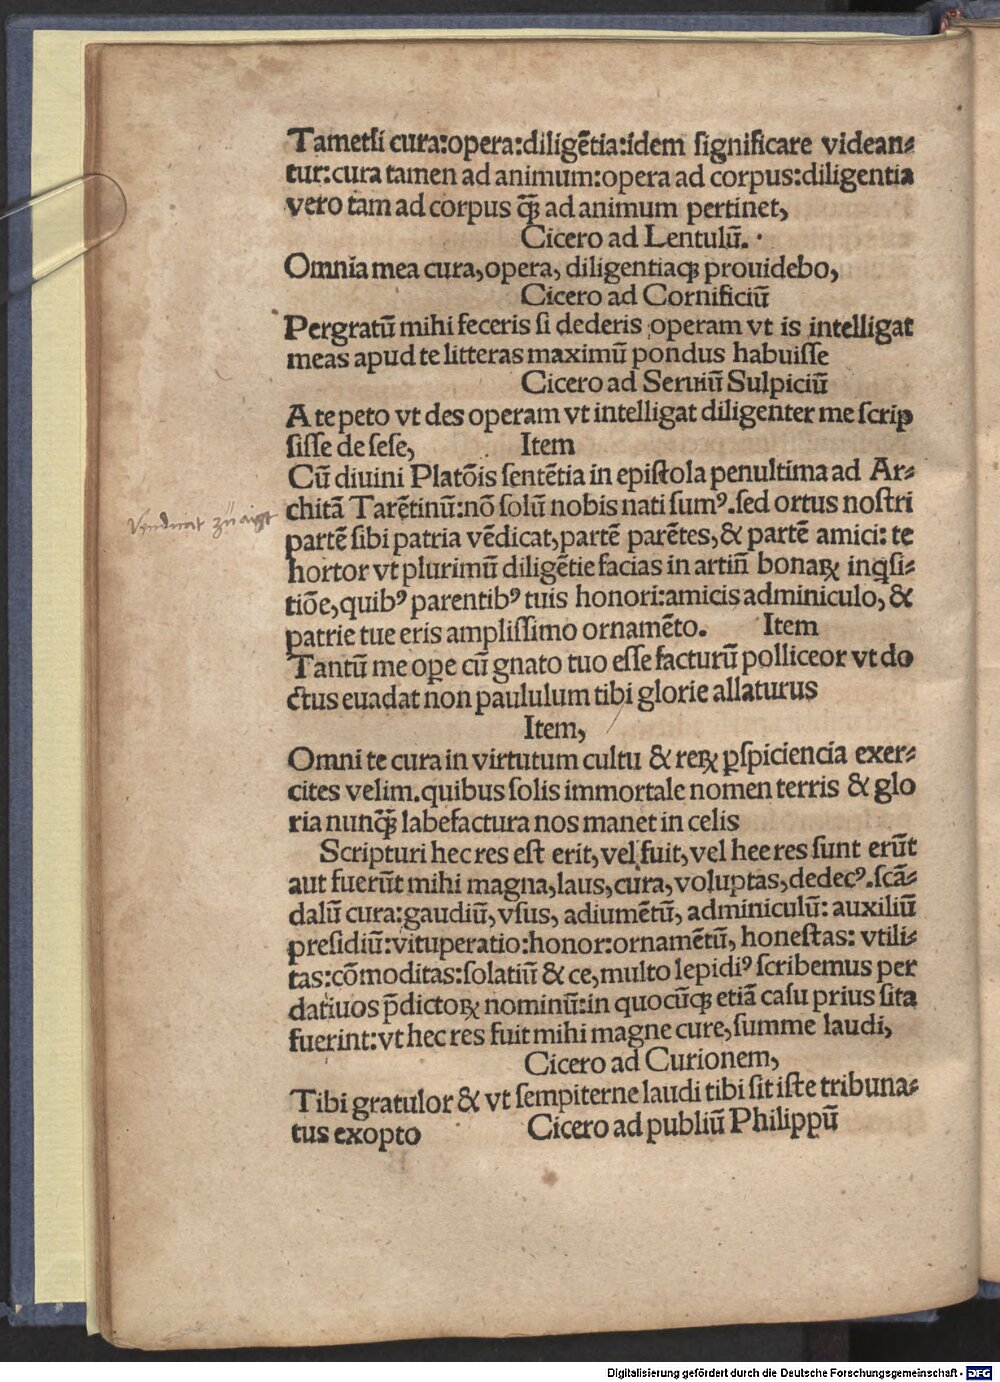 Tametſi cura:opera:diligẽtia:idem ſignificare videan⸗
tur:cura tamen ad animum:opera ad corpus:diligentia
vero tam ad corpus q̃ꝫ ad animum pertinet,
Cicero ad Lentulũ.
Omnia mea cura,opera, diligentiaqꝫ prouidebo,
Cicero ad Cornificiũ
Pergratũ mihi feceris ſi dederis operam vt is intelligat
meas apud te litteras maximũ pondus habuiſſe
Cicero ad Seruiũ Sulpiciũ
A te peto vt des operam vt intelligat diligenter me ſcrip
ſiſſe de ſeſe, Item
Cũ diuini Platõis ſentẽtia in epiſtola penultima ad Ar⸗
chitã Tarẽtinũ:nõ ſolũ nobis nati ſumꝰ.ſed ortus noſtri
partẽ ſibi patria vẽdicat,partẽ parẽtes,& partẽ amici: te
hortor vt plurimũ diligẽtie facias in artiũ bonaꝝ inqͥſi⸗
tiõe,quibꝰ parentibꝰ tuis honori:amicis adminiculo, &
patrie tue eris ampliſſimo ornamẽto. Item
Vendicat zů aigt
Tantũ me oꝑe cũ gnato tuo eſſe facturũ polliceor vt do
ctus euadat non paululum tibi glorie allaturus
Item,
Omni te cura in virtutum cultu & reꝝ ꝑſpiciencia exer⸗
cites velim.quibus ſolis immortale nomen terris & glo
ria nunq̃ꝫ labefactura nos manet in celis
Scripturi hec res eſt erit,vel fuit,vel hee res ſunt erũt
aut fuerũt mihi magna,laus,cura,voluptas,dedecꝰ.ſcã⸗
dalũ cura:gaudiũ,vſus, adiumẽtũ, adminiculũ: auxiliũ
preſidiũ:vituperatio:honor:ornamẽtũ, honeſtas: vtili⸗
tas:cõmoditas:ſolatiũ & ce,multo lepidiꝰ ſcribemus per
datiuos p̃dictoꝝ nominũ:in quocũqꝫ etiã caſu prius ſita
fuerint:vt hec res fuit mihi magne cure,ſumme laudi,
Cicero ad Curionem,
Tibi gratulor & vt ſempiterne laudi tibi ſit iſte tribuna⸗
tus exopto Cicero ad publiũ Philippũ
Digitalisierung gefördert durch die Deutsche Forschungsgemeinschaft - DFG